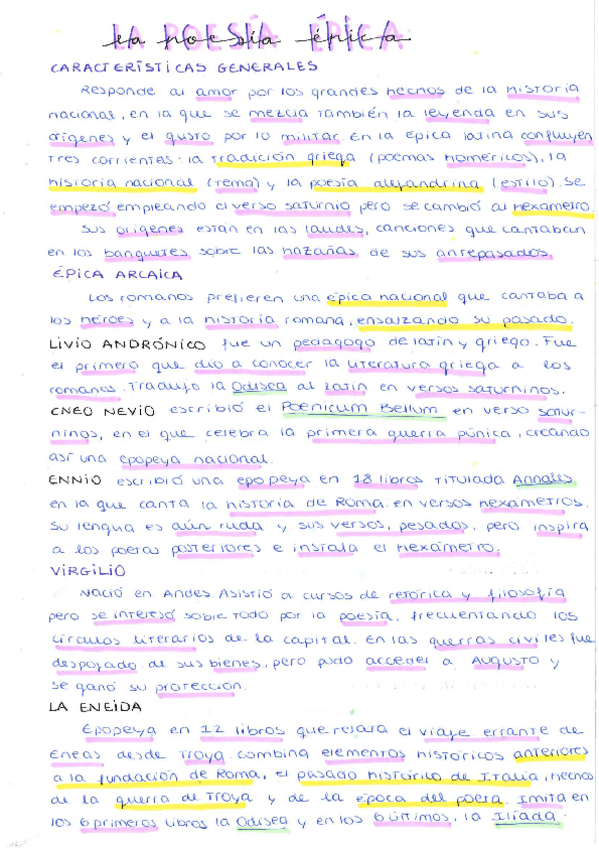 LA POESÍA ÉPICA
CARACTERÍSTICAS GENERALES
Responde al amor por los grandes hechos de la historia
nacional, en la que se mezcla también la leyenda en sus
orígenes y el gusto por lo militar. En la épica latina confluyen
tres corrientes: la tradición griega (poemas homéricos), la
historia nacional (tema) y la poesía alejandrina (estilo). Se
empezó empleando el verso saturnio pero se cambió al hexámetro.
Sus orígenes están en las laudes, canciones que cantaban
en los banquetes sobre las hazañas de sus antepasados.
ÉPICA ARCAICA
Los romanos prefieren una épica nacional que cantaba a
los héroes y a la historia romana, ensalzando su pasado.
LIVIO ANDRÓNICO fue un pedagogo de latín y griego. Fue
el primero que dio a conocer la literatura griega a los
romanos. Tradujo la Odisea al latín en versos saturninos.
CNEO NEVIO escribió el Poenicum Bellum en verso satur-
ninos, en el que celebra la primera guerra púnica, creando
así una epopeya nacional.
ENNIO escribió una epopeya en 18 libros titulada Annales
en la que canta la historia de Roma en versos hexámetros.
Su lengua es aún ruda y sus versos, pesados, pero inspira
a los poetas posteriores e instala el hexámetro.
VIRGILIO
Nació en Andes. Asistió a cursos de retórica y filosofía
pero se interesó sobre todo por la poesía, frecuentando los
círculos literarios de la capital. En las guerras civiles fue
despojado de sus bienes, pero pudo acceder a Augusto y
se ganó su protección.
LA ENEIDA
Epopeya en 12 libros que relata el viaje errante de
Eneas desde Troya. Combina elementos históricos anteriores
a la fundación de Roma, el pasado histórico de Italia, hechos
de la guerra de Troya y de la época del poeta. Imita en
los 6 primeros libros la Odisea y en los 6 últimos, la Ilíada.